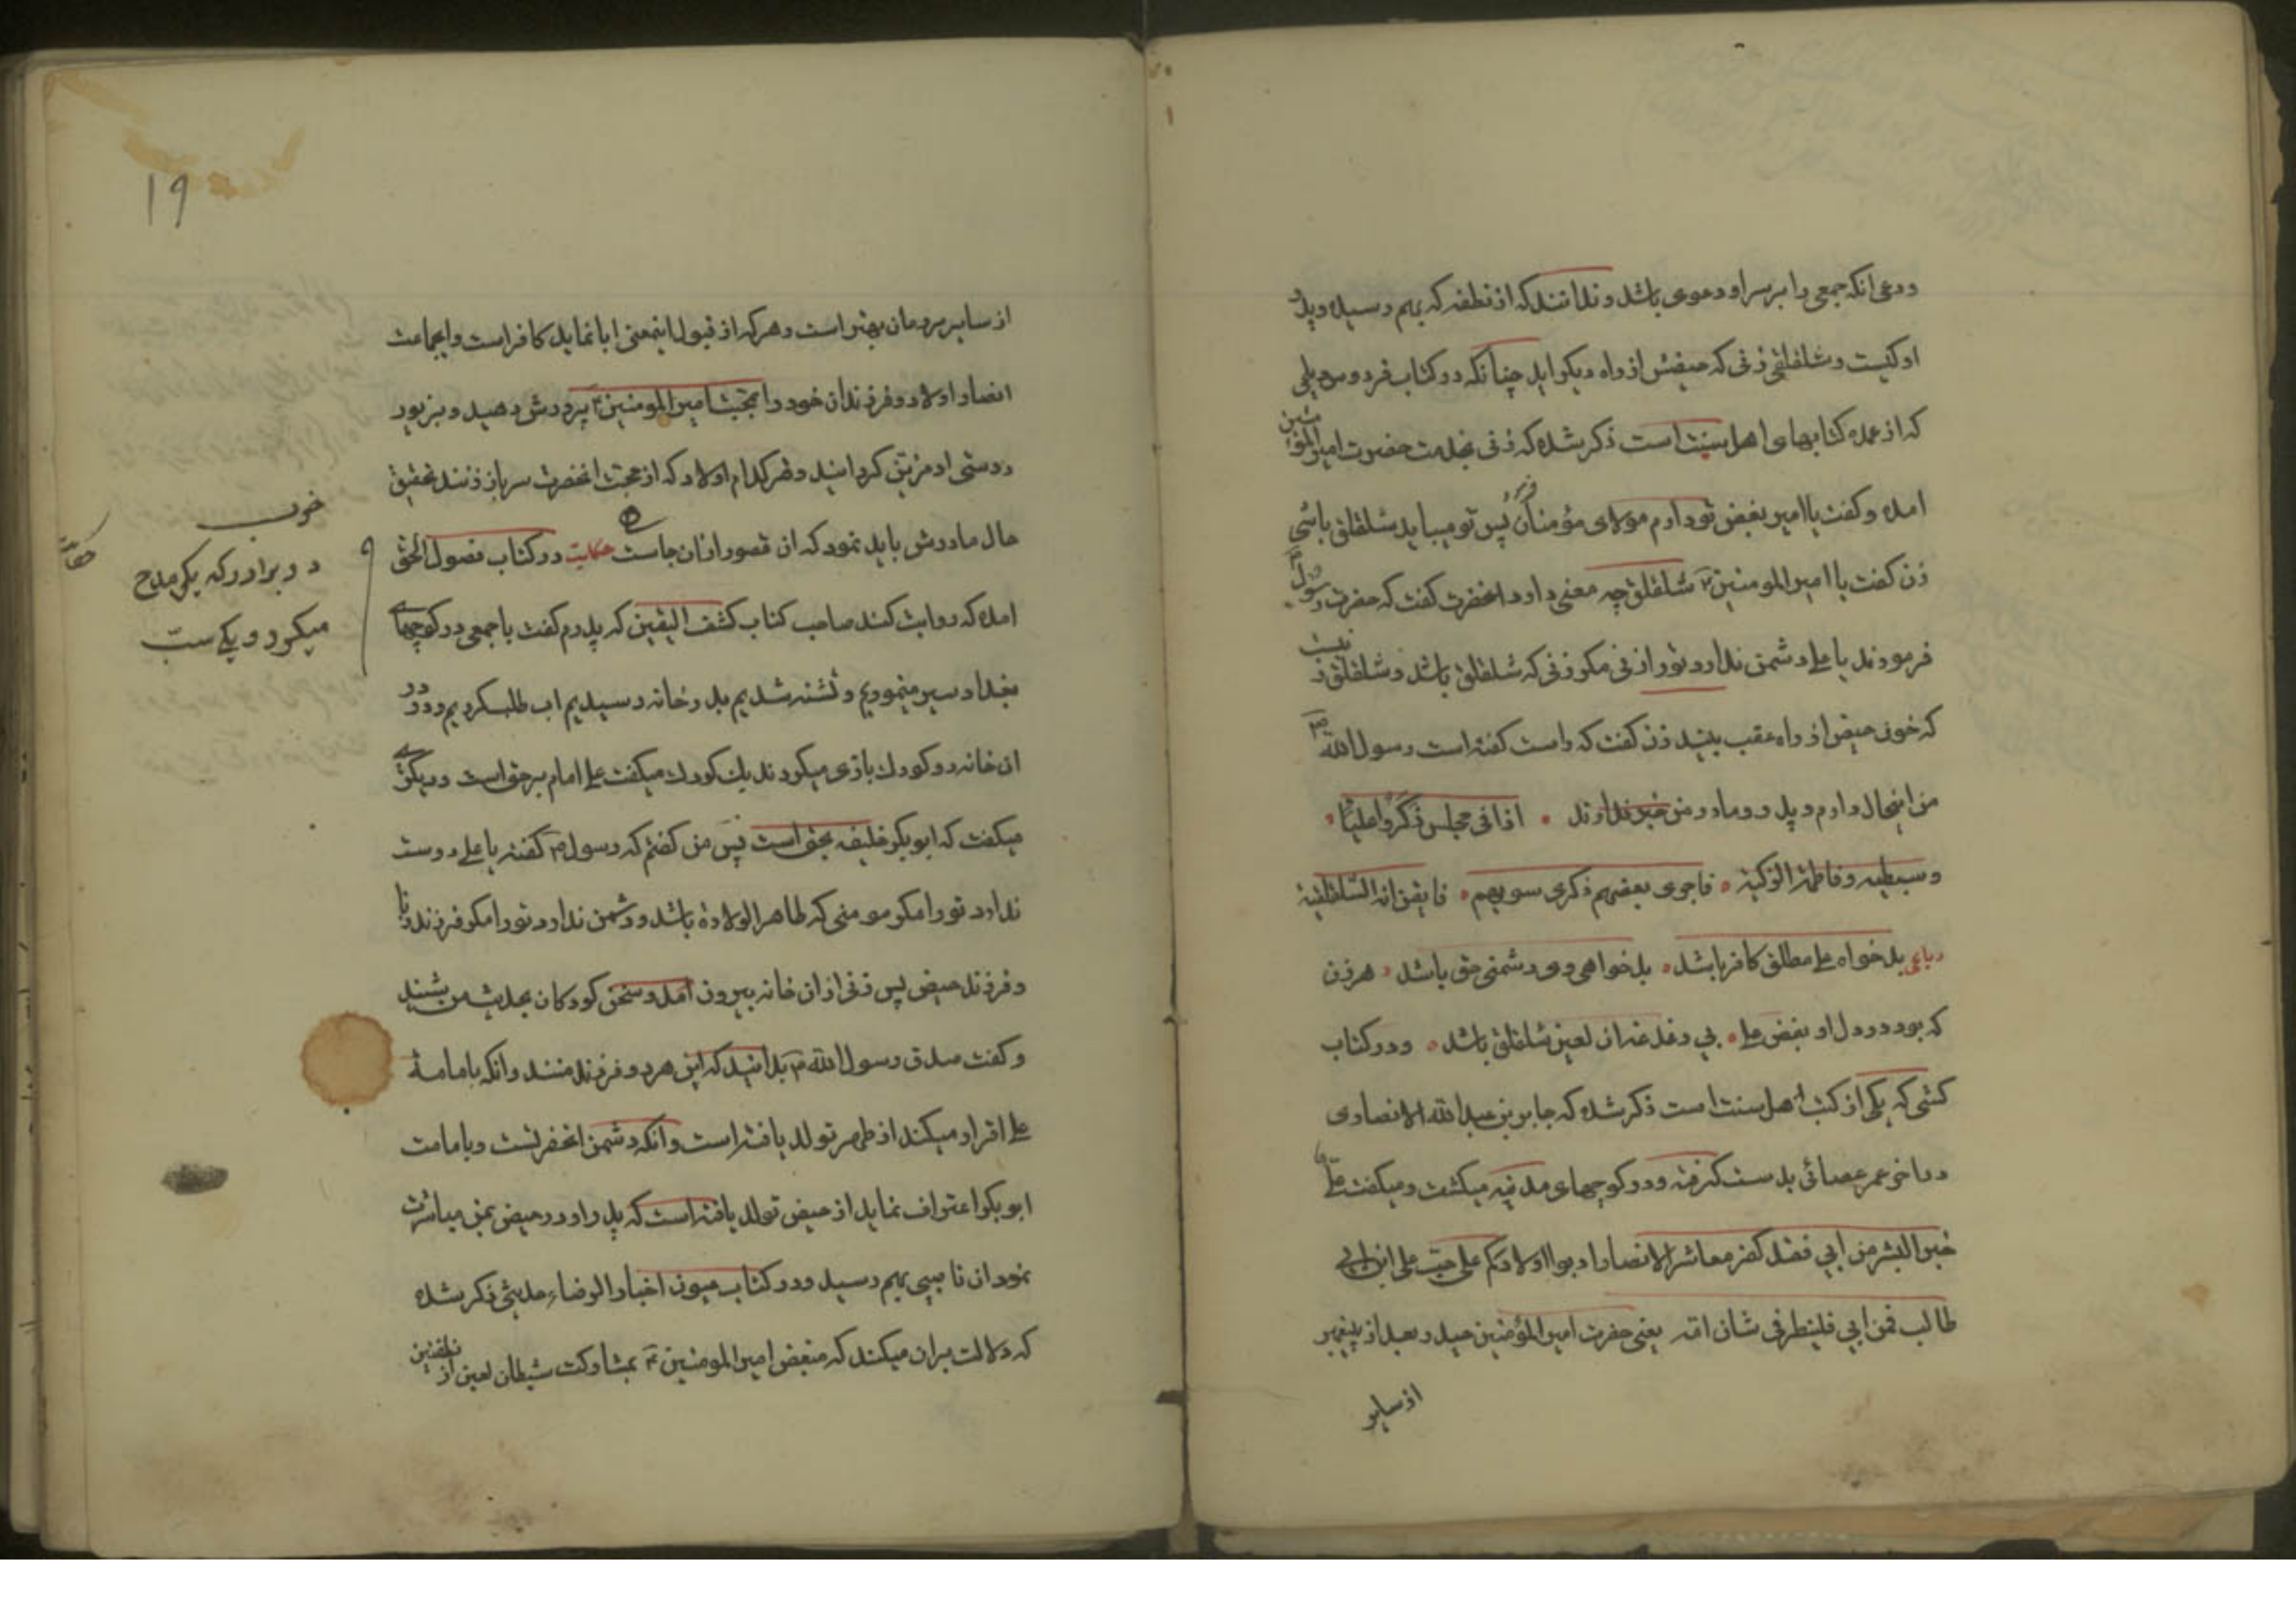 ودعی انکه جمعی را بر سر او دعوی باشد و ندانند که از نطفه که بهم رسیده و پدر
او کیست و شلقلقی زنی که حیضش از راه دیکر اید چنانکه در کتاب فردوس دیلمی
که از عمده کتابهای اهل سنت است ذکر شده که زنی بخدمت حضرت امیر المؤمنین
امده و کفت یا امیر بغض تو دارم مولای مؤمنان فرمود پس تو میباید شلقلقی باشی
زن کفت یا امیر المومنین ع شلقلق چه معنی دارد انحضرت کفت که حضرت رسول ص
فرمودند یا علی دشمن ندارد تو را از زنی مکر زنی که شلقلق باشد و شلقلق زنیست
که خون حیض از راه عقب بیند زن کفت که راست کفته است رسول الله ص
من اینحال دارم و پدر و مادر من خبر ندارند • اذا فی مجلس ذکروا علیا •
و سبطیه و فاطمة الزکیة • فاجری بعضهم ذکری سویهم • فایقن انه السلقلقیة
رباعی بدخواه علی مطلق کافر باشد • بدخواهی وی دشمنی حق باشد • هر زن
که بود در دل او بغض علی • بی دغدغه ان لعین شلقلق باشد • و در کتاب
کشی که یکی از کتب اهل سنت است ذکر شده که جابر بن عبد الله الانصاری
در اخر عمر عصائی بدست کرفته و در کوچهای مدینه میکشت و میکفت علی
خیر البشر من ابی فقد کفر معاشر الانصار ادبوا اولادکم علی حب علی ابن ابی
طالب فمن ابی فلینظر فی شان امه یعنی حضرت امیر المؤمنین حیدر بعد از پیغمبر
از سایر
19
از سایر مردمان بهتر است و هر که از قبول اینمعنی ابا نماید کافر است و ایجماعت
انصار اولاد و فرزندان خود را بمحبت امیر المومنین ع پرورش دهید و بزیور
دوستی او مزین کردانید و هر کدام اولاد که از محبت انحضرت سر باز زنند تحقیق
حال مادرش باید نمود که ان قصور از ان جاست حکایت در کتاب فصول الحق
امده که روایت کند صاحب کتاب کشف الیقین که پدرم کفت با جمعی در کوچهای
بغداد سیر مینمودیم و تشنه شدیم بدر خانه رسیدیم اب طلب کردیم و در در
ان خانه دو کودک بازی میکردند یک کودک میکفت علی امام برحق است و دیکری
میکفت که ابوبکر خلیفه بحق است پس من کفتم که رسول ص کفته یا علی دوست
ندارد تو را مکر مومنی که طاهر الولادة باشد و دشمن ندارد تو را مکر فرزند زنا
و فرزند حیض پس زنی از ان خانه بیرون امد و سخن کودکان بحدیث من بشنید
و کفت صدق رسول الله ص بدانید که این هر دو فرزند منند و انکه بامامة
علی اقرار میکند از طهر تولد یافته است و انکه دشمن انحضرتست و بامامت
ابوبکر اعتراف نماید از حیض تولد یافته است که پدر او در حیض بمن مباشرت
نمود ان ناصبی بهم رسید و در کتاب عیون اخبار الرضاء حدیثی ذکر شده
که دلالت بران میکند که مبغض امیر المومنین ع بمشارکت شیطان لعین از نطفتین
حکایت
خوب
دو برادر که یکی مدح
میکرد و یکی سب